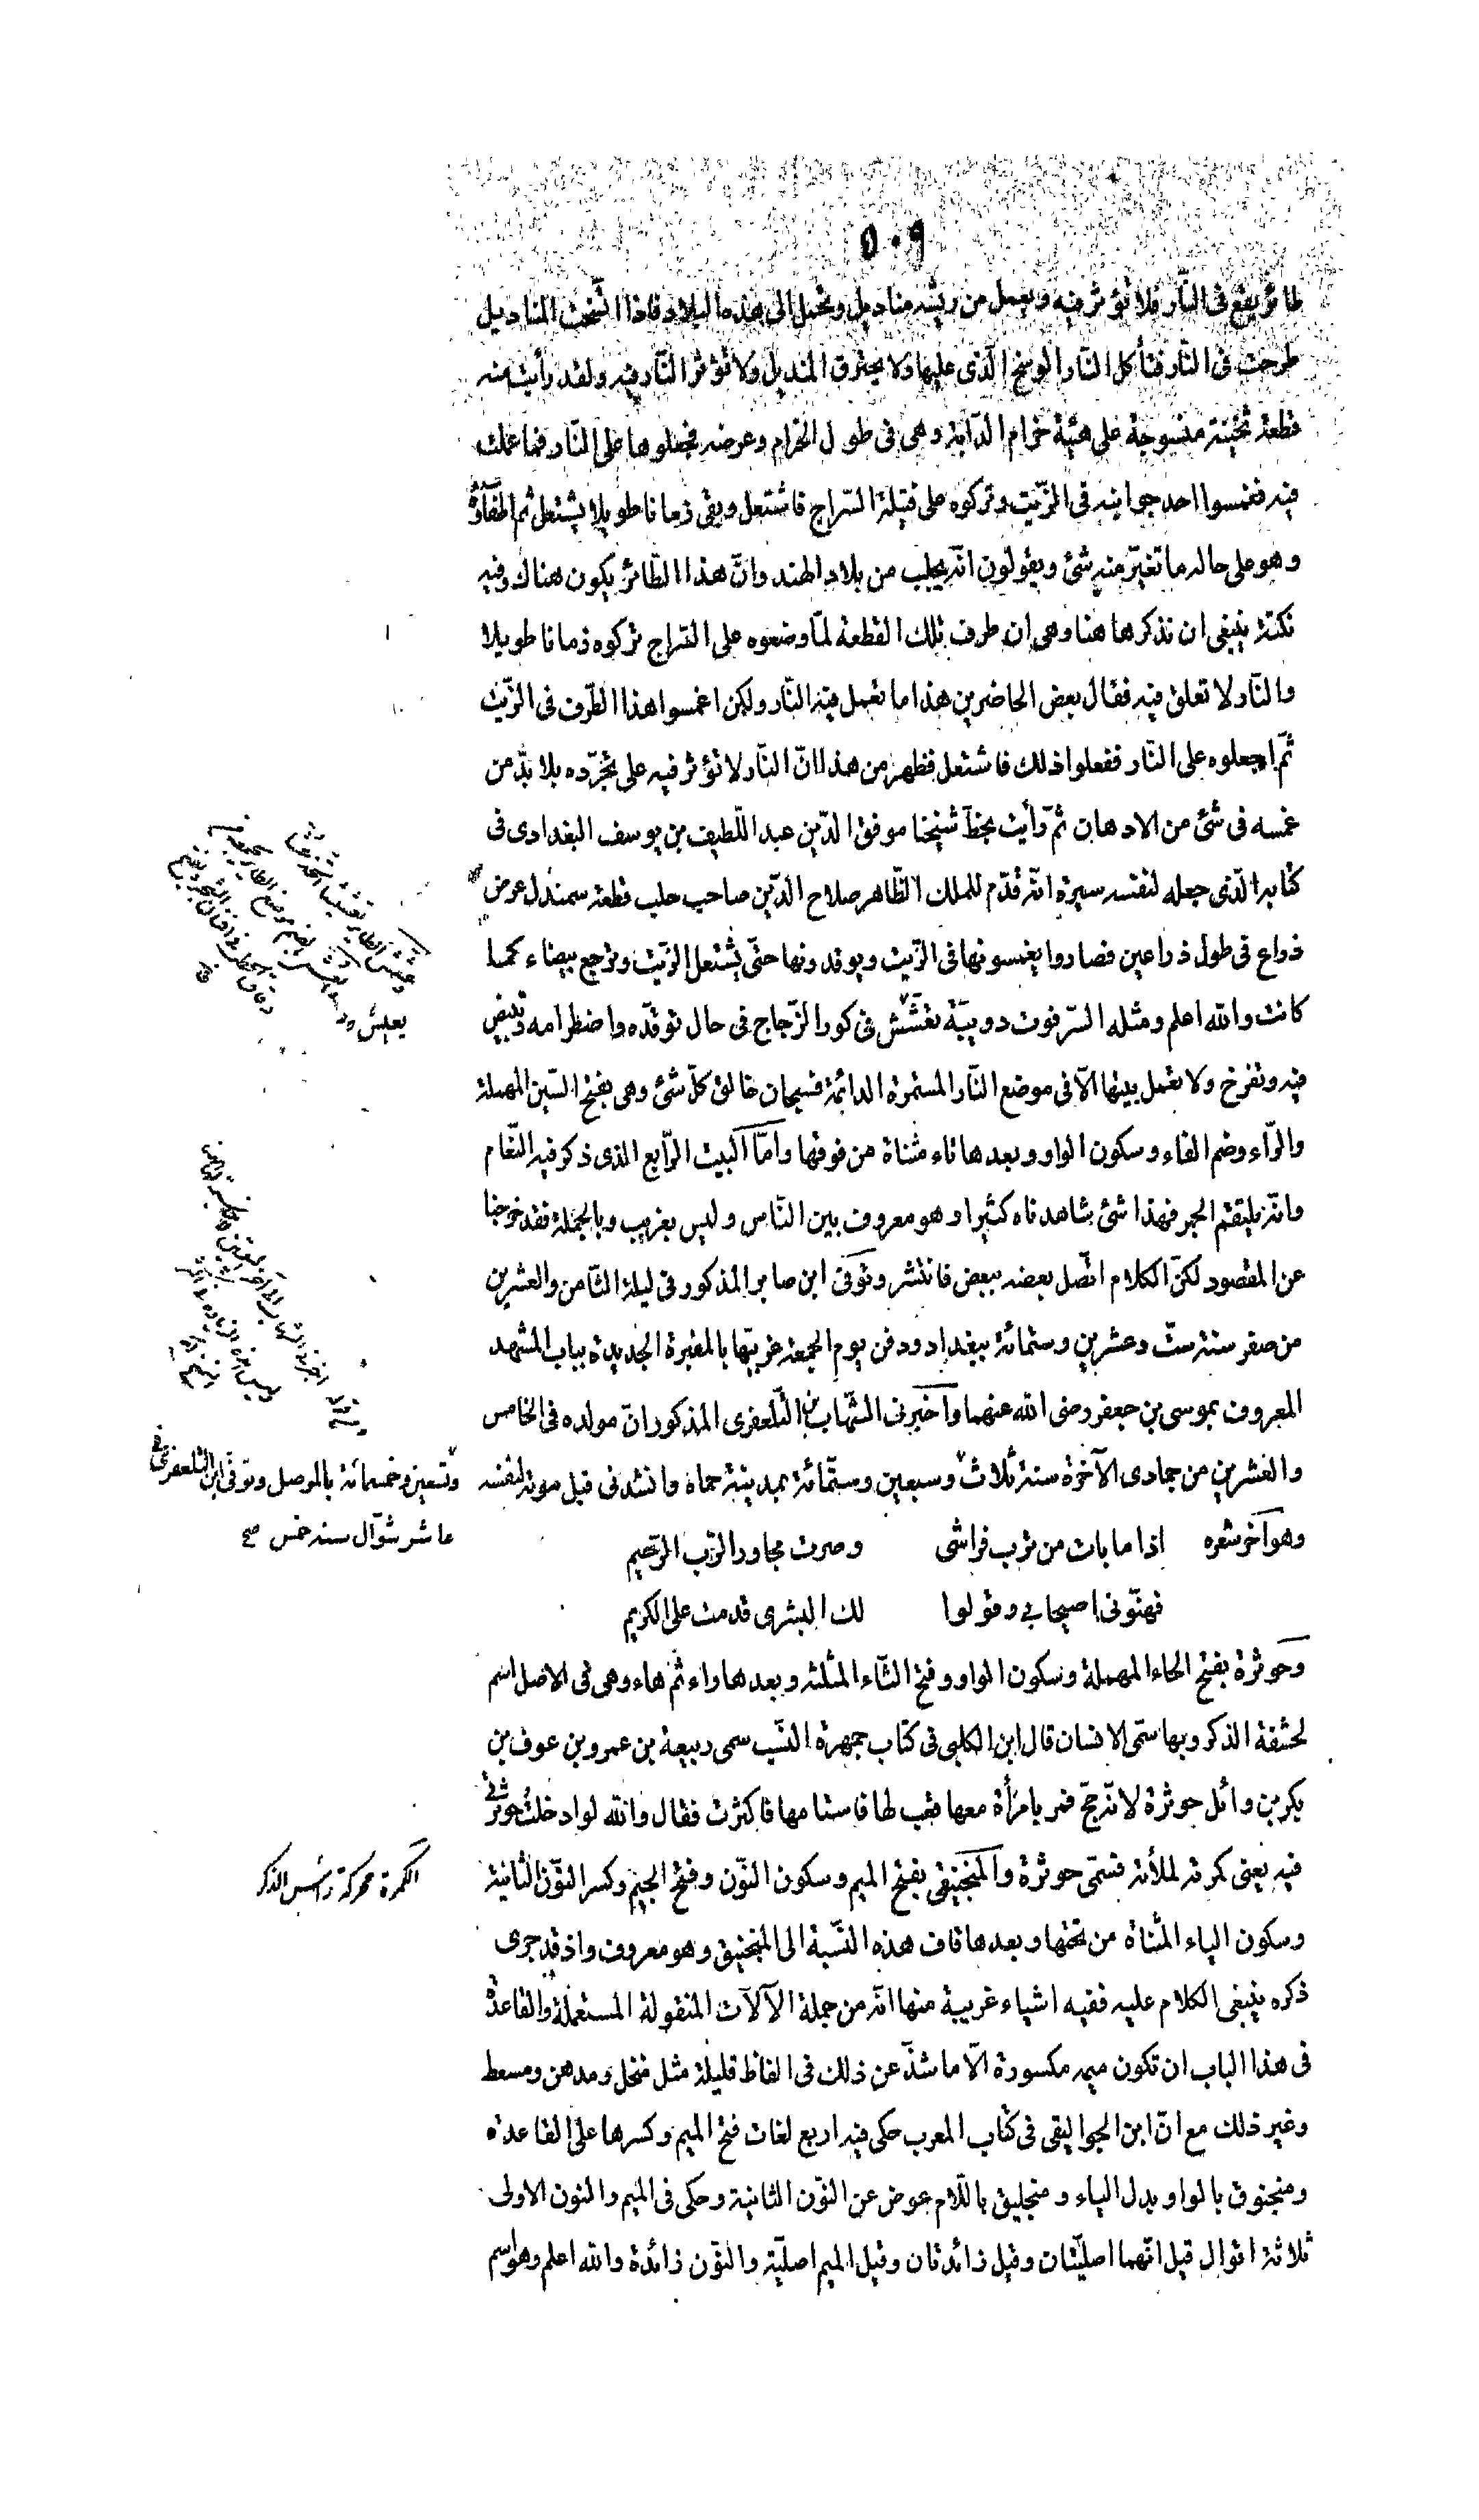 ٥٠٩
طائر يقع فى النّار فلا تؤثر فيه ويعمل من ريشه مناديل وتحمل الى هذه البلاد فاذا اتّسخت المناديل
طرحت فى النّار فتأكل النّار الوسخ الّذى عليها ولا يحترق المنديل ولا تؤثر النّار فيه ولقد رأيت منه
قطعة ثخينة منسوجة على هيئة حزام الدّابة وهى فى طول الحزام وعرضه فجعلوها على النّار فما عملت
فيه فغمسوا احد جوانبه فى الزّيت وتركوه على فتيلة السّراج فاشتعل وبقى زمانا طويلا يشتعل ثم اطفأوهُ
وهو على حاله ما تغيّر منه شئ ويقولون انّه يجلب من بلاد الهند وانّ هذا الطّائر يكون هناك وفيه
نكتة ينبغى ان نذكرها هنا وهى ان طرف تلك القطعة لمّا وضعوه على السّراج تركوه زمانا طويلا
والنّار لا تعلق فيه فقال بعض الحاضرين هذا ما تعمل فيه النّار ولكن اغمسوا هذا الطّرف فى الزّيت
ثمّ اجعلوه على النّار ففعلوا ذلك فاشتعل فظهر من هذا انّ النّار لا تؤثر فيه على تجرّده بلا بدّ من
غمسه فى شئ من الادهان ثمّ رأيت بخطّ شيخنا موفق الدّين عبد اللّطيف بن يوسف البغدادى فى
كتابه الّذى جعله لنفسه سيرة انّه قدّم للملك الظّاهر صلاح الدّين صاحب حلب قطعة سمندل عرض
ذراع فى طول ذراعين فصاروا يغمسونها فى الزّيت ويوقدونها حتّى يشتعل الزّيت وترجع بيضاء كما
كانت والله اعلم ومثله السّرفوت دويبّة تعشّش فى كور الزّجاج فى حال توقّده واضطرامه وتبيض
فيه وتفرخ ولا تعمل بيتها الّا فى موضع النّار المستمرة الدائمة فسبحان خالق كلّ شئ وهى بفتح السّين المهملة
والرّاء وضم الفاء وسكون الواو وبعدها تاء مثناة من فوقها وامّا البيت الرّابع الذى ذكر فيه النّعام
وانّه يلتقم الجمر فهذا شئ شاهدناه كثيرا وهو معروف بين النّاس وليس بغريب وبالجملة فقد خرجنا
عن المقصود لكنّ الكلام اتّصل بعضه ببعض فانتشر وتوفى ابن صابر المذكور فى ليلة الثّامن والعشرين
من صفر سنة ستّ وعشرين وستمائة ببغداد ودفن يوم الجمعة غربيّها بالمقبرة الجديدة بباب المشهد
المعروف بموسى بن جعفر رضى الله عنهما واخبرنى الشّهاب بن التّلعفرى المذكور انّ مولده فى الخامس
والعشرين من جمادى الآخرة سنة ثلاث وسبعين وستّمائة بمدينة حماه وانشدنى قبل موته لنفسه
وتسعين وخمسمائة بالموصل وتوفى ابن التلعفرى فى
عاشر شوّال سنه خمس صح
وهو آخر شعره اذا ما بات من ترب فراشى وصرت مجاور الرّب الرّحيم
فهنّونى اصيحابى وقولوا لك البشرى قدمت على الكريم
وحوثرة بفتح الحاء المهملة وسكون الواو وفتح الثّاء المثلثه وبعدها راء ثم هاء وهى فى الاصل اسم
لحشفة الذكر وبها سمّى الانسان قال ابن الكلبى فى كتاب جمهرة النّسب سمى ربيعة بن عمرو بن عوف بن
بكر بن وائل حوثرة لانّه حجّ فمر بامرأة معها قعب لها فاستامها فاكثرت فقال والله لو ادخلت حوثرتى
فيه يعنى كمرته لملأته فسمّى حوثرة والمنجنيقى بفتح الميم وسكون النّون وفتح الجيم وكسر النّون الثانية
الكمرة محركة رأس الذكر
وسكون الياء المثناة من تحتها وبعدها قاف هذه النّسبة الى المنجنيق وهو معروف واذ قد جرى
ذكره ينبغى الكلام عليه ففيه اشياء غريبة منها انّه من جملة الآلات المنقولة المستعملة والقاعدة
فى هذا الباب ان تكون ميمه مكسورة الّا ما شذّ عن ذلك فى الفاظ قليلة مثل منخل ومدهن ومسعط
وغير ذلك مع انّ ابن الجواليقى فى كتاب المعرب حكى فيه اربع لغات فتح الميم وكسرها على القاعدة
ومنجنوق بالواو بدل الياء ومنجليق باللّام عوض عن النّون الثانية وحكى فى الميم والنون الاولى
ثلاثة اقوال قيل انّهما اصليّتان وقيل زائدتان وقيل الميم اصليّة والنّون زائدة والله اعلم وهو اسم